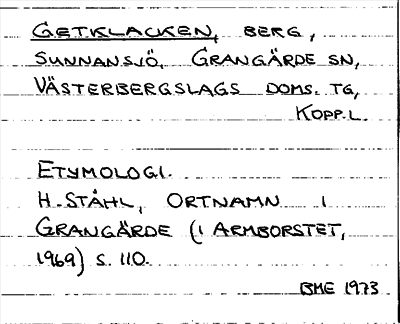 GETKLACKEN, BERG,
SUNNANSJÖ, GRANGÄRDE SN,
VÄSTERBERGSLAGS DOMS. TG,
KOPP.L.
ETYMOLOGI.
H. STÅHL, ORTNAMN I
GRANGÄRDE (I ARMBORSTET,
1969) S. 110.
BME 1973